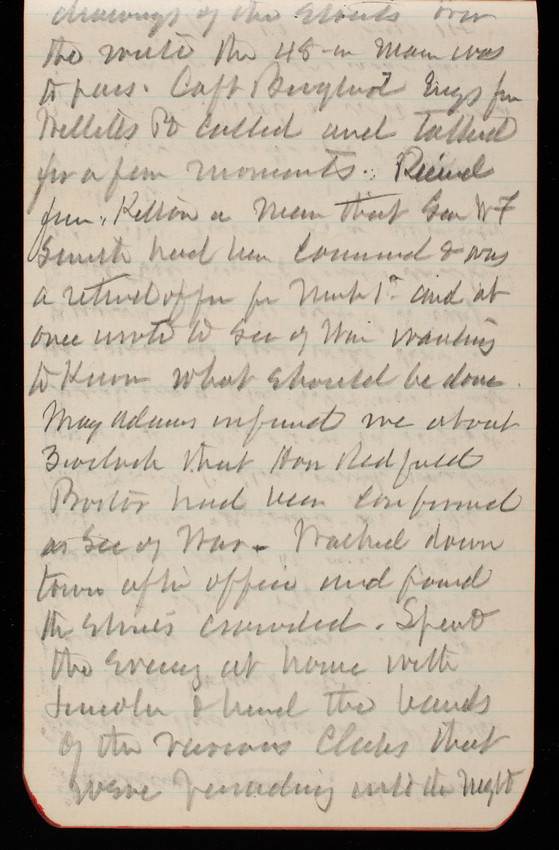 drawings of the streets over
the route the 48 in main was
to pass. Capt Engs from
Willetts Pt called and talked
for a few moments. Recived
from Kelton a Mem that Gen W F
Smith had been & was
a retired offr fr Mch 1st and at
once wrote to Sec of War wanting
to Know what should be done.
Maj Adams infmed me about
3 oclock that Hon Redfield
Proctor had been confirmed
as Sec of War. Walked down
town aftr office and found
the stores crowded. Spent
the Evening at home with
Lincoln & heard the bands
of the various Clubs that
were parading into the Night